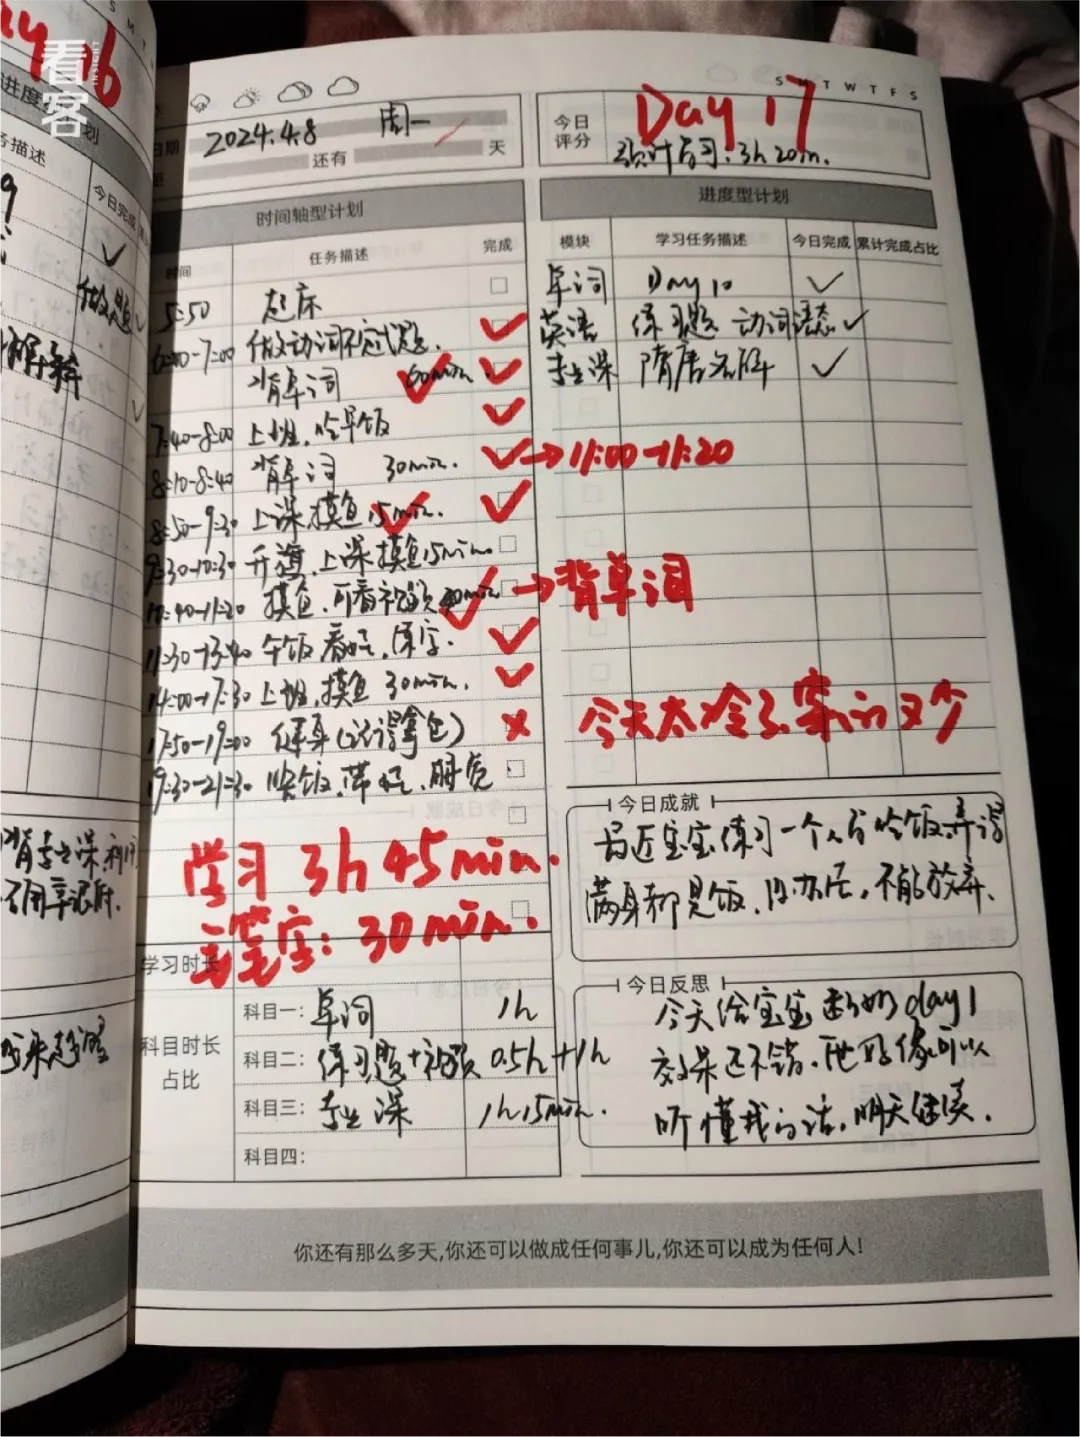 看客
INSIGHT
进度
划
务描述
今日完成
做题
2024.4.8 周一
日期
还有 天
S M T W T F S
今日评分
Day 17
预计学习:3h 20min.
时间轴型计划
时间 任务描述 完成
5:50 起床
6:00-7:00 做动词不定式题.
背单词 60min
7:40-8:00 上班,吃早饭
8:10-8:40 背单词 30min. →11:00-11:20
8:50-9:30 上课摸鱼15min.
9:30-10:30 升旗,上课摸鱼15min.
10:40-11:20 摸鱼,可看视频 →背单词
11:30-13:40 午饭 看娃,练字.
14:00-17:30 上班,摸鱼 30min.
17:50-19:00 健身(记得拿包)
19:30-21:30 晚饭,带娃,睡觉
学习 3h 45min.
毛笔字: 30min.
学习时长
科目时长占比
科目一: 单词 1h
科目二: 练习题+视频 0.5h+1h
科目三: 专业课 1h 15min.
科目四:
进度型计划
模块 学习任务描述 今日完成 累计完成占比
单词 Day 10
英语 练习题 动词语态
专业课 隋唐名解
今天太冷了,穿的又少
今日成就
最近宝宝练习一个人学吃饭,弄得
满身都是饭,没办法,不能放弃.
今日反思
今天给宝宝断奶day1
效果还不错.他好像可以
听懂我的话,明天继续.
你还有那么多天,你还可以做成任何事儿,你还可以成为任何人!